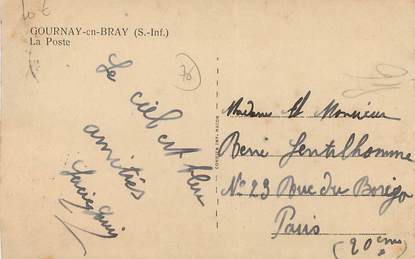 GOURNAY-en-BRAY (S.-Inf.)
La Poste
Le ciel est bleu
amitiés
Madame et Monsieur
René Gentilhomme
No 23 Rue du Borégo
Paris
(20ème)